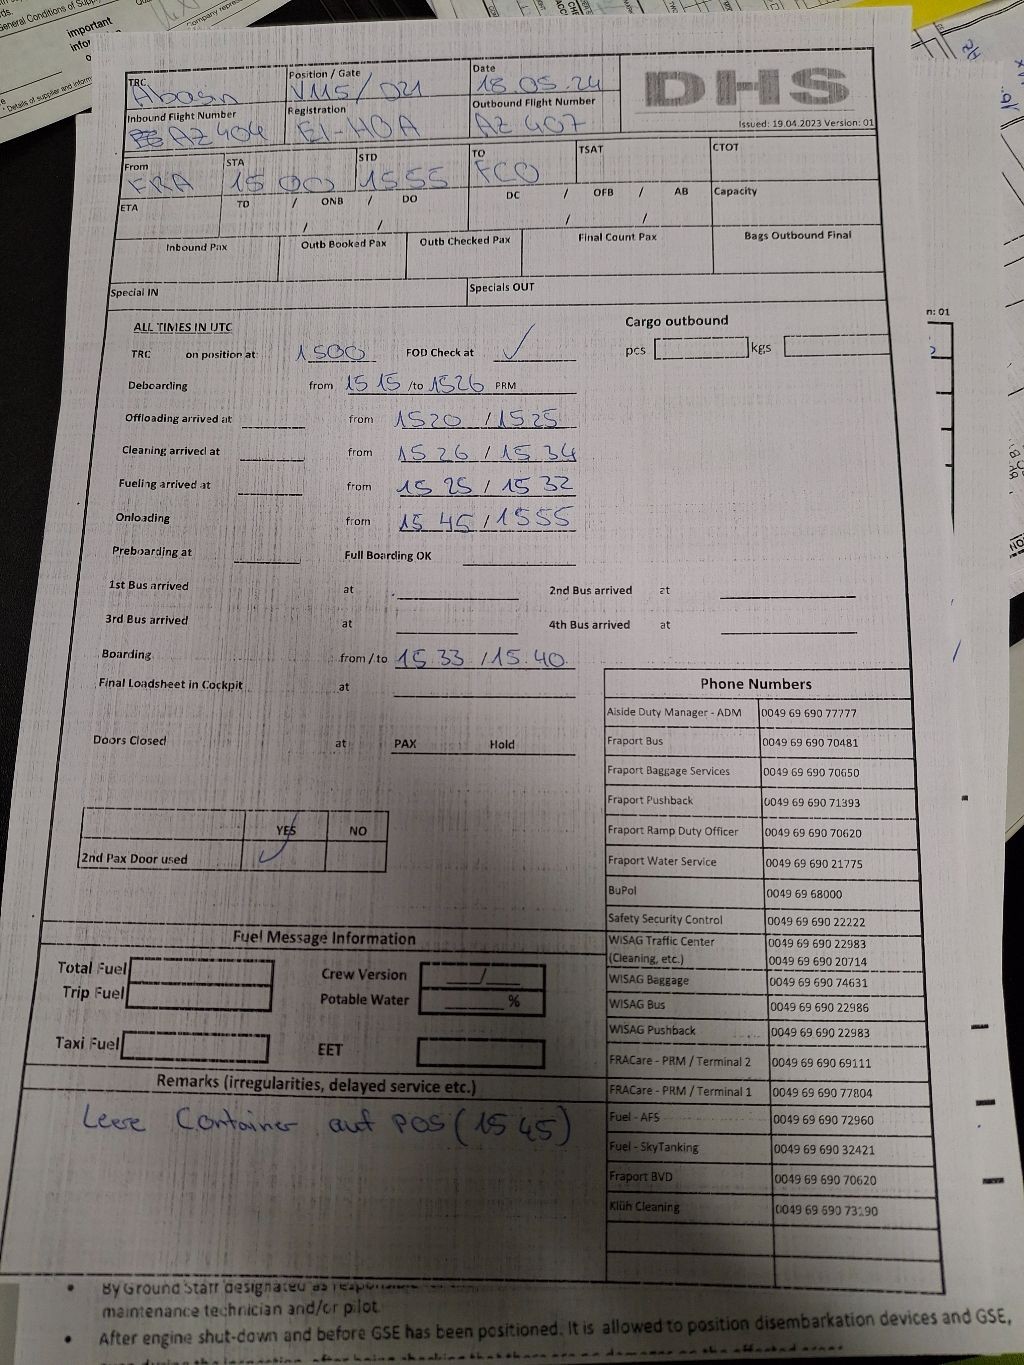 important
TRC Position / Gate Date
Abasn V115/021 18.05.24
DHS
Inbound Flight Number Registration Outbound Flight Number
AZ 404 EI-HOA AZ 407
Issued: 19.04.2023 Version: 01
From STA STD TO TSAT CTOT
FRA 15 00 1555 FCO
ETA TD / ONB / DO DC / OFB / AB Capacity
/ / / /
Inbound Pax Outb Booked Pax Outb Checked Pax Final Count Pax Bags Outbound Final
Special IN Specials OUT
ALL TIMES IN UTC Cargo outbound
TRC on position at 1500 FOD Check at ✓ pcs kgs
Deboarding from 15 15 /to 1526 PRM
Offloading arrived at from 1520 / 1525
Cleaning arrived at from 15 26 / 15 34
Fueling arrived at from 15 25 / 15 32
Onloading from 15 45 / 1555
Preboarding at Full Boarding OK
1st Bus arrived at 2nd Bus arrived at
3rd Bus arrived at 4th Bus arrived at
Boarding from / to 15 33 / 15.40
Final Loadsheet in Cockpit at
Doors Closed at PAX Hold
YES NO
2nd Pax Door used ✓
Phone Numbers
Aiside Duty Manager - ADM 0049 69 690 77777
Fraport Bus 0049 69 690 70481
Fraport Baggage Services 0049 69 690 70650
Fraport Pushback 0049 69 690 71393
Fraport Ramp Duty Officer 0049 69 690 70620
Fraport Water Service 0049 69 690 21775
BuPol 0049 69 68000
Safety Security Control 0049 69 690 22222
WISAG Traffic Center 0049 69 690 22983
(Cleaning, etc.) 0049 69 690 20714
WISAG Baggage 0049 69 690 74631
WISAG Bus 0049 69 690 22986
WISAG Pushback 0049 69 690 22983
FRACare - PRM / Terminal 2 0049 69 690 69111
FRACare - PRM / Terminal 1 0049 69 690 77804
Fuel - AFS 0049 69 690 72960
Fuel - SkyTanking 0049 69 690 32421
Fraport BVD 0049 69 690 70620
Klüh Cleaning 0049 69 690 73190
Fuel Message Information
Total Fuel Crew Version /
Trip Fuel Potable Water %
Taxi Fuel EET
Remarks (irregularities, delayed service etc.)
Leere Container auf POS (15 45)
n: 01
• By Ground Staff designated as
maintenance technician and/or pilot
• After engine shut-down and before GSE has been positioned. It is allowed to position disembarkation devices and GSE,